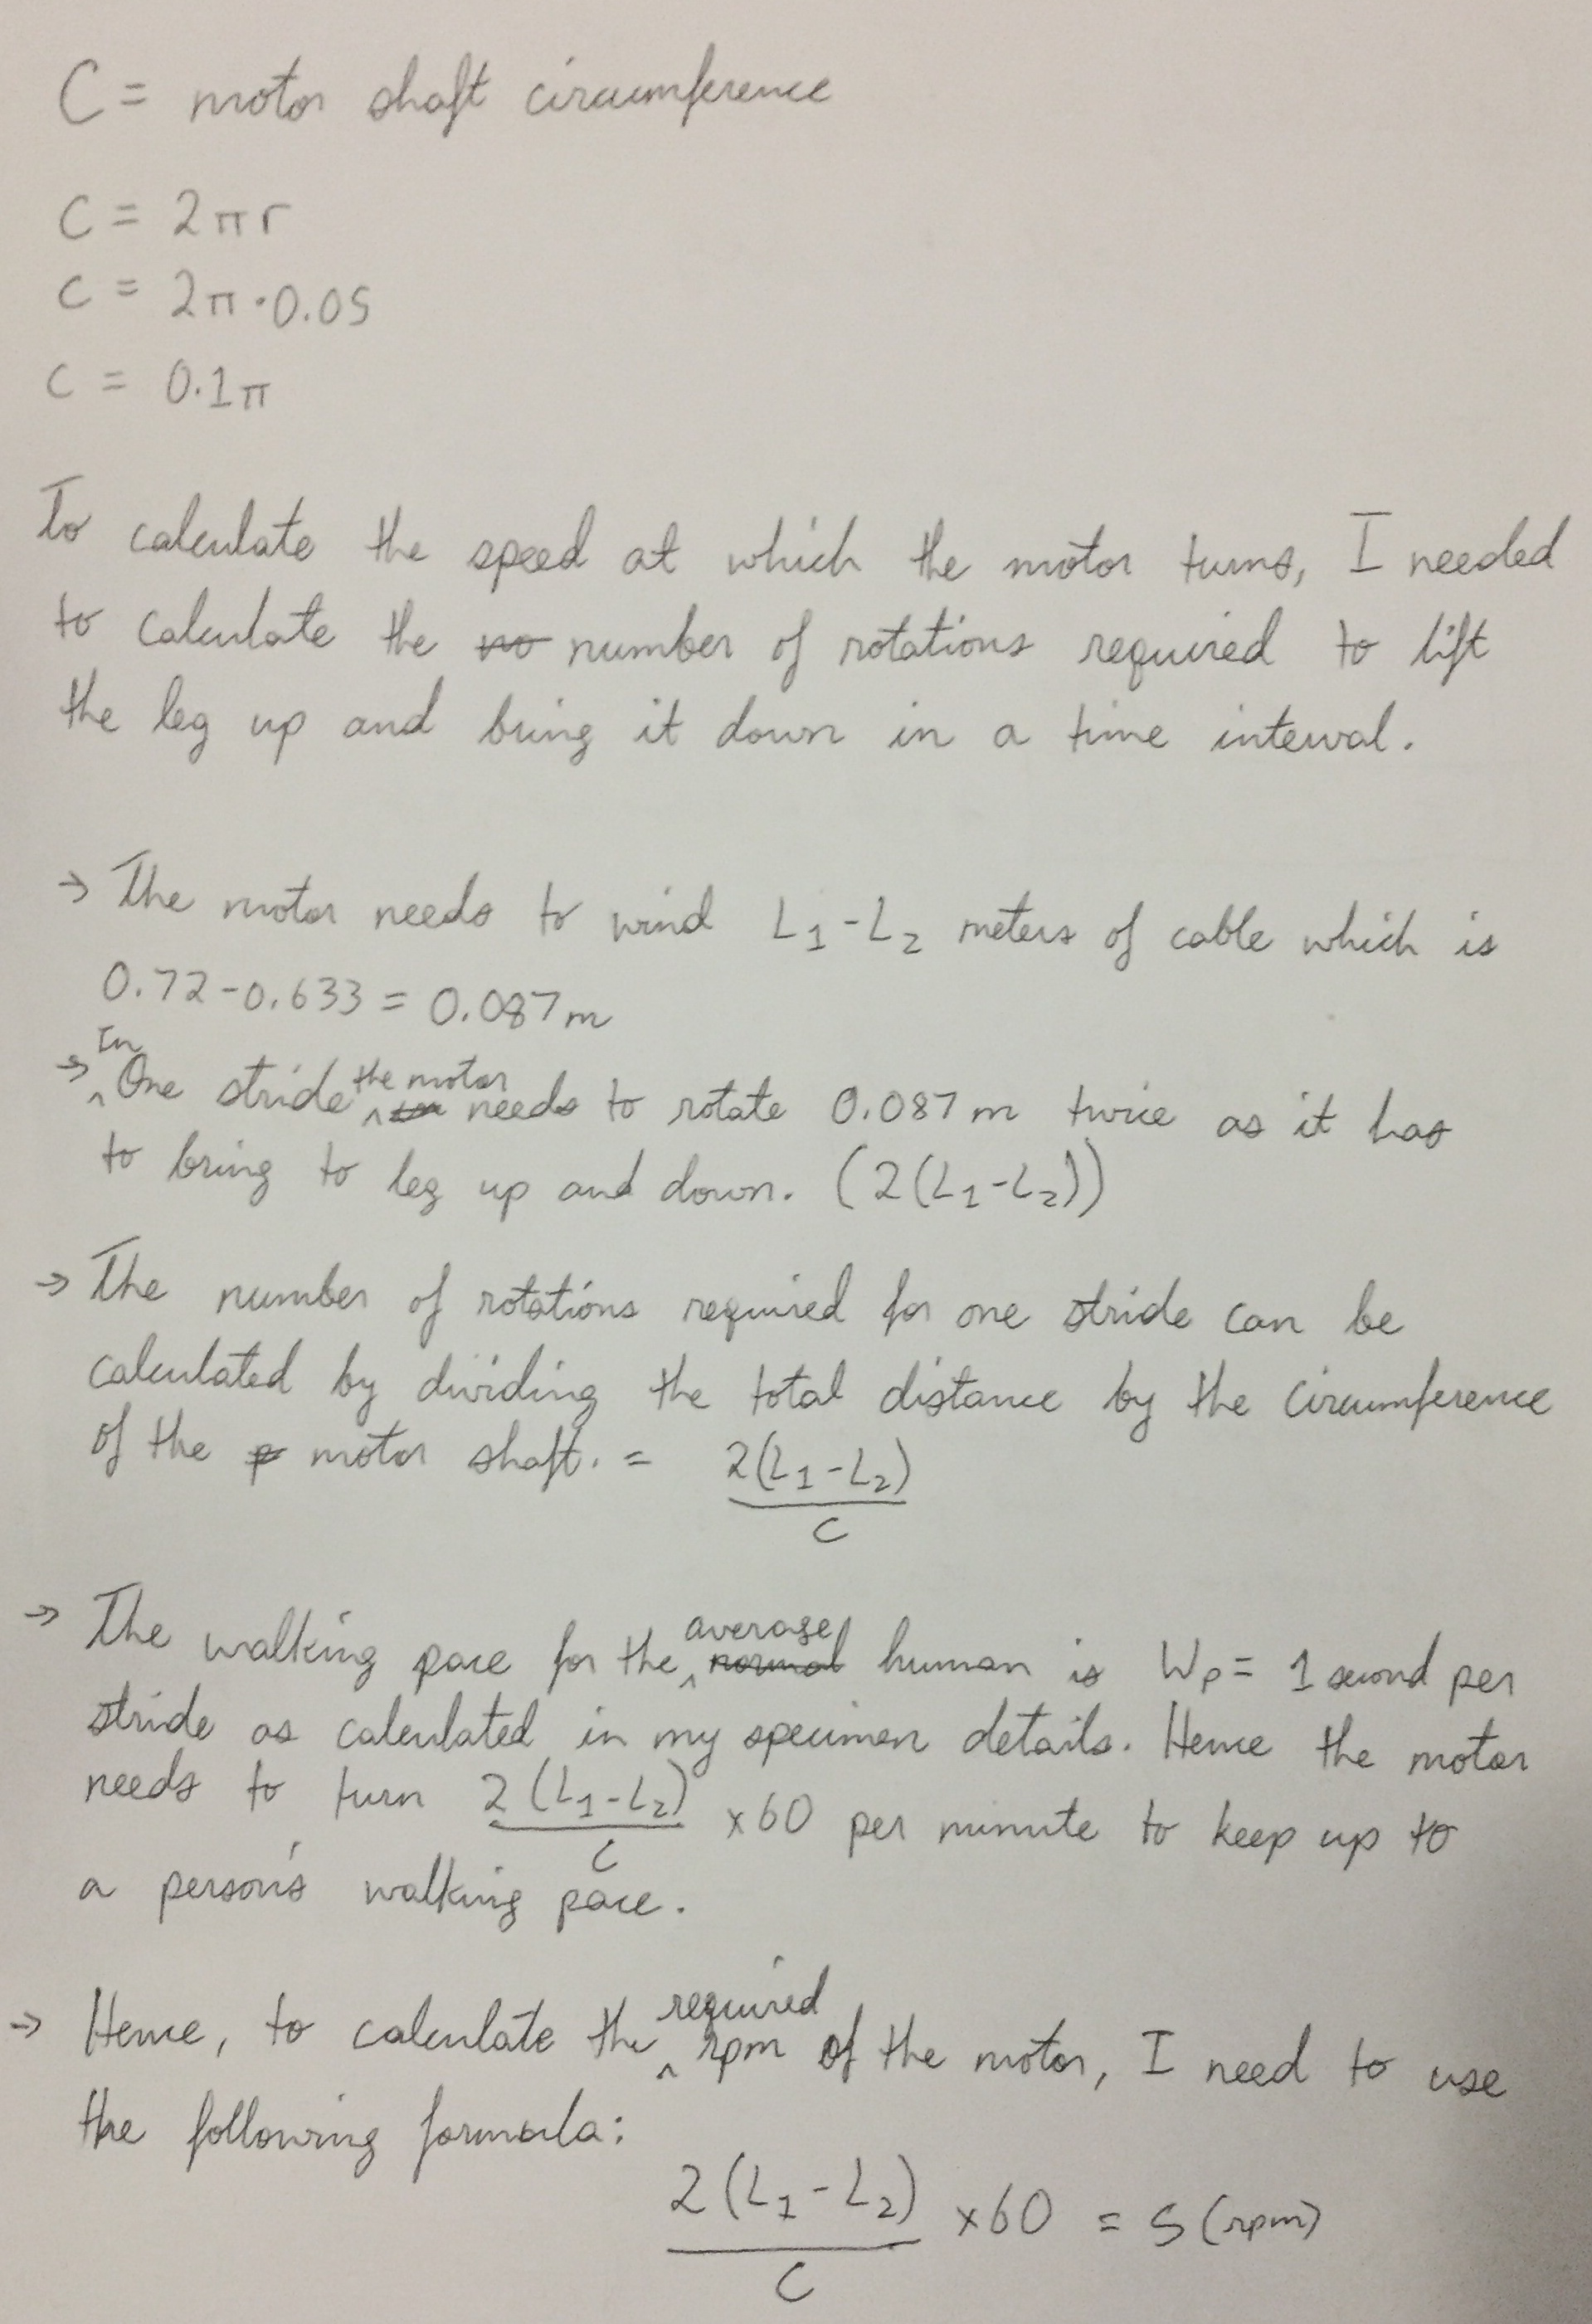 C = motor shaft circumference
C = 2πr
C = 2π·0.05
C = 0.1π
To calculate the speed at which the motor turns, I needed
to calculate the no number of rotations required to lift
the leg up and bring it down in a time interval.
→ The motor needs to wind L₁-L₂ meters of cable which is
0.72-0.633 = 0.087m
→ In One stride the motor needs to rotate 0.087m twice as it has
to bring to leg up and down. (2(L₁-L₂))
→ The number of rotations required for one stride can be
calculated by dividing the total distance by the circumference
of the motor shaft. = 2(L₁-L₂)/C
→ The walking pace for the average normal human is Wp = 1 second per
stride as calculated in my specimen details. Hence the motor
needs to turn 2(L₁-L₂)/C ×60 per minute to keep up to
a person's walking pace.
→ Hence, to calculate the required rpm of the motor, I need to use
the following formula:
2(L₁-L₂)/C ×60 = S (rpm)